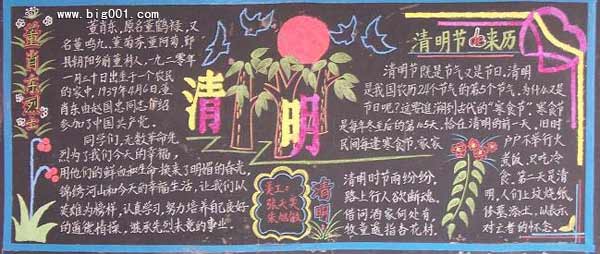 www.big001.com
董肖东烈士
董肖东，原名董鹤禄，又
名董鸣九、董菊芬、董阿菊，鄞
县朝阳乡前董村人，一九一零年
一月三十日出生于一个农民
的家中，1939年4月6日，董
肖东由赵国忠同志介绍
参加了中国共产党。
同学们，无数革命先
烈为了我们今天的幸福，
用他们的鲜血和生命换来了明媚的春光，
锦绣河山和今天的幸福生活，让我们以
英雄为榜样，认真学习，努力培养自己良好
的道德情操，继承先烈未竟的事业。
清明
美工：
张天昊
清明
清明时节雨纷纷，
路上行人欲断魂。
借问酒家何处有，
牧童遥指杏花村。
清明节的来历
清明节既是节气又是节日，清明
是我国农历24个节气的第5个节气，为什么又是
节日呢？这要追溯到古代的“寒食节”，寒食节
是每年冬至后的第105天，恰在清明的前一天，旧时
民间每逢寒食节，家家
户户不举行火
煮饭，只吃冷
食，第二天是清
明，人们上坟烧纸，
修墓添土，以表示
对亡者的怀念。